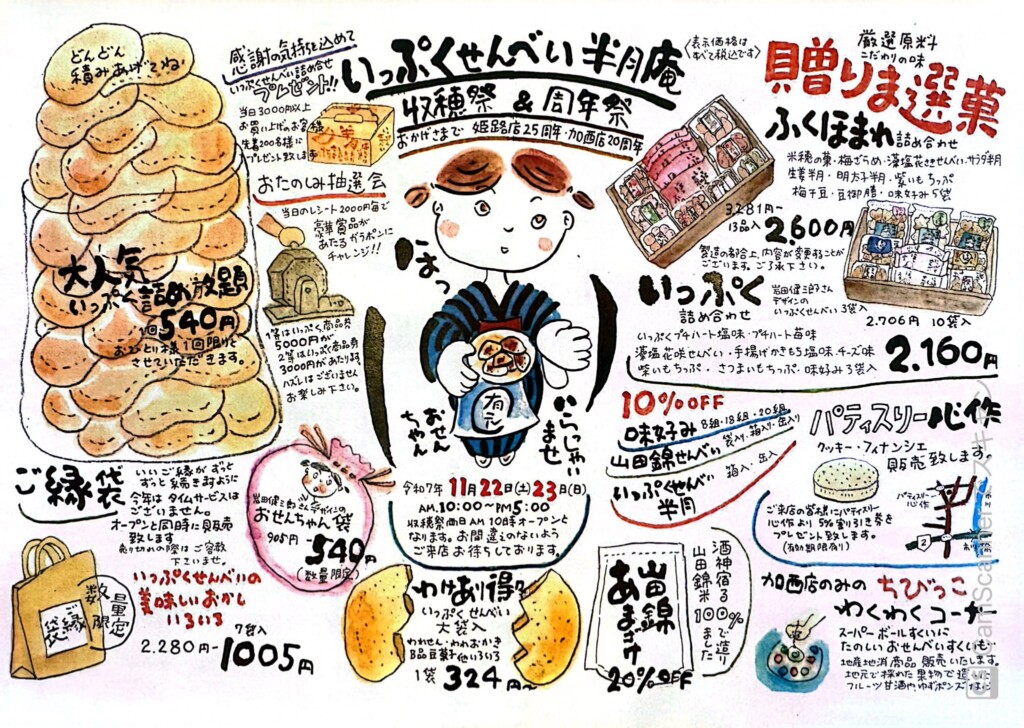 どんどん
積みあげてね
大人気
いっぷく詰め放題
1回540円
おひとり様1回限りと
させていただきます。
感謝の気持ちを込めて
いっぷくせんべい詰合せ
プレゼント!!
当日3000円以上
お買い上げのお客様
先着200名様に
プレゼント致します
おたのしみ抽選会
当日のレシート2000円毎で
豪華賞品が
あたるガラポンに
チャレンジ!!
1等はいっぷく商品券
5000円が
2等はいっぷく商品券
3000円があたります。
ハズレはございません
お楽しみ下さい。
いっぷくせんべい半月庵
収穫祭&周年祭
おかげさまで 姫路店25周年・加西店20周年
〈表示価格は
すべて税込です〉
ほっ
有元
おせん
ちゃん
いらっしゃい
ませ
厳選原料
こだわりの味
贈りま選菓
ふくほまれ詰め合わせ
米穂の菓・梅ざらめ・藻塩花咲きせんべい・サラダ半月
生姜半月・明太子半月・紫いもちっぷ
梅干豆・豆御膳・味好み5袋
3,281円〜
13品入 2,600円
製造の都合上、内容が変更することが
ございます。ご了承下さい。
いっぷく
詰め合わせ
岩田健三郎さん
デザインの
いっぷくせんべい3袋入
2,706円 10袋入
いっぷくプチハート塩味・プチハート苺味
藻塩花咲せんべい・手揚げかきもち塩味・チーズ味
紫いもちっぷ・さつまいもちっぷ・味好み3袋入
2,160円
10%OFF
味好み 8組・18組・20組
袋入り・箱入り・缶入り
山田錦せんべい
いっぷくせんべい
箱入・缶入
半月
パティスリー心作
クッキー・フィナンシェ
販売致します。
ご来店の皆様にパティスリー
心作より5%割り引き券を
プレゼント致します。
(有効期限有り)
パティスリー
心作
2
ご縁袋
いいご縁がずっと
ずっと続きますように
今年はタイムサービスは
ございません。
オープンと同時に販売
致します
売り切れの際はご容赦
下さいませ。
ご縁
袋
数量
限定
いっぷくせんべいの
美味しいおかし
いろいろ
7袋入
2,280円→1005円
岩田健三郎さんデザインの
おせんちゃん袋
905円→540円
(数量限定)
令和7年11月22日(土)23日(日)
AM.10:00〜PM5:00
収穫祭両日AM10時オープンと
なります。お間違えのないよう
ご来店お待ちしております。
わけあり得々
いっぷくせんべい
大袋入
われせん・われおかき
B品豆菓子他いろいろ
1袋324円〜
山田錦
あまざけ
20%OFF
酒神宿る
山田錦米
100%
まで造り
ました
加西店のみのちびっこ
わくわくコーナー
スーパーボールすくいに
たのしいおせんすくいも
地産地消商品販売いたします。
地元で採れた果物で造った
フルーツ甘酒や、ゆずポンズなど
CS CamScanner